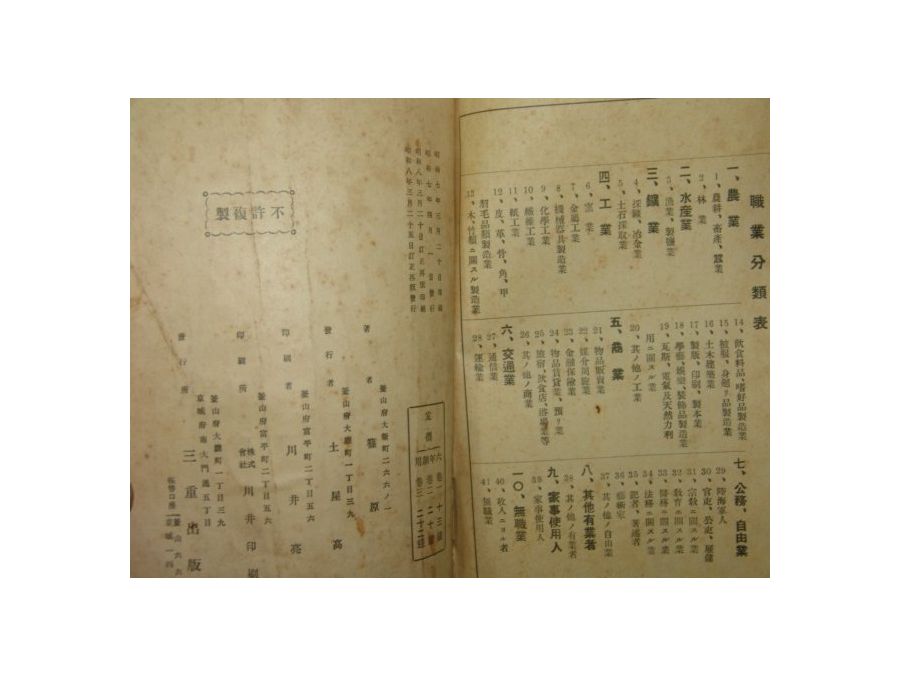 職業分類表
一、農業
1、農耕、畜產、蠶業
2、林業
二、水産業
3、漁業、製鹽業
三、鑛業
4、採鑛、冶金業
5、土石採取業
四、工業
6、窯業
7、金屬工業
8、機械器具製造業
9、化學工業
10、纖維工業
11、紙工業
12、皮、革、骨、角、甲
羽毛品類製造業
13、木、竹類ニ關スル製造業
14、飮食料品、嗜好品製造業
15、被服、身廻リ品製造業
16、土木建築業
17、製版、印刷、製本業
18、學藝、娛樂、裝飾品製造業
19、瓦斯、電氣及天然力利
用ニ關スル業
20、其ノ他ノ工業
五、商業
21、物品販賣業
22、媒介周旋業
23、金融保險業
24、物品賃貸業、預リ業
25、旅宿、飮食店、浴場業等
26、其ノ他ノ商業
六、交通業
27、通信業
28、運輸業
七、公務、自由業
29、陸海軍人
30、官吏、公吏、雇傭
31、宗敎ニ關スル業
32、敎育ニ關スル業
33、醫務ニ關スル業
34、法務ニ關スル業
35、記者、著述者
36、藝術家
37、其ノ他ノ自由業
八、其他有業者
38、其ノ他ノ有業者
九、家事使用人
39、家事使用人
一〇、無職業
40、收入ニヨル者
41、無職業
昭和七年三月二十日印刷
昭和七年四月一日發行
昭和八年三月二十日訂正再版印刷
昭和八年三月二十五日訂正再版發行
不許複製
定價
六年制用
卷一 十三錢
卷二 二十錢
卷三 二十二錢
著者
釜山府大新町二六六ノ一
原
發行者
釜山府大廳町一丁目三九
土屋高
印刷者
釜山府富平町二丁目五六
川井亮
印刷所
釜山府富平町二丁目五六
株式會社 川井印刷
發行所
釜山府大廳町一丁目三九
京城府南大門通五丁目
三重出版